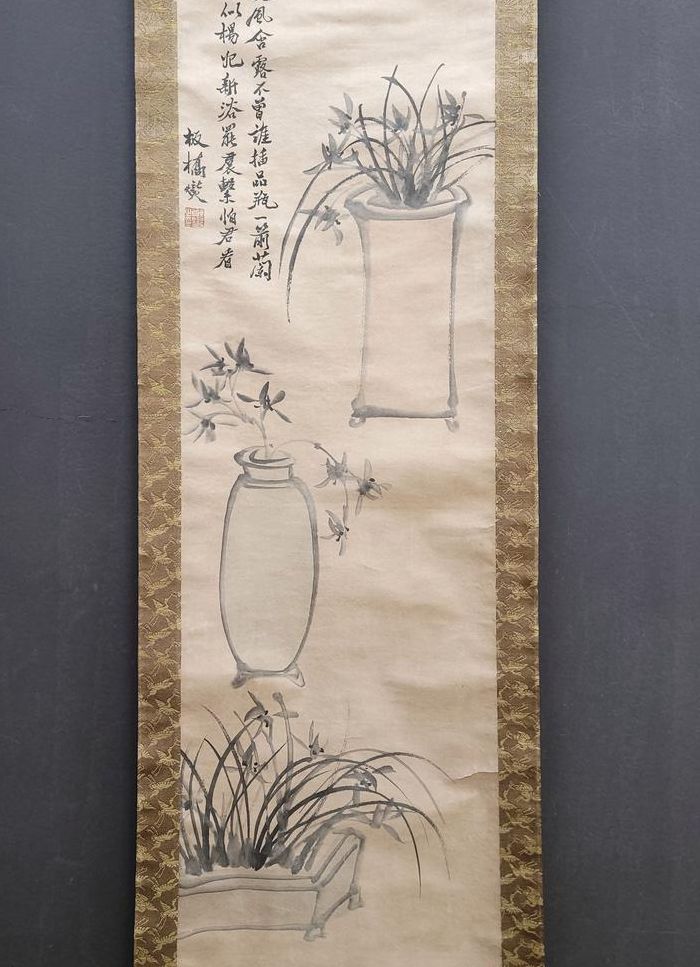 風含露不曾誰插品瓶一箭蘭
似楊妃新浴罷裳繫怕君看
板橋燮